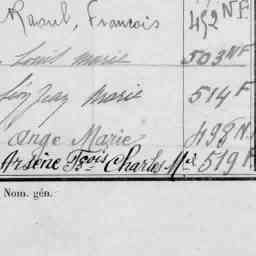 Raoul, François 492 NF
Louis Marie 503 NF
Léon Jean Marie 514 F
Ange Marie 498 N
Arsène Fçois Charles Mie 519 F
Nom. gén.